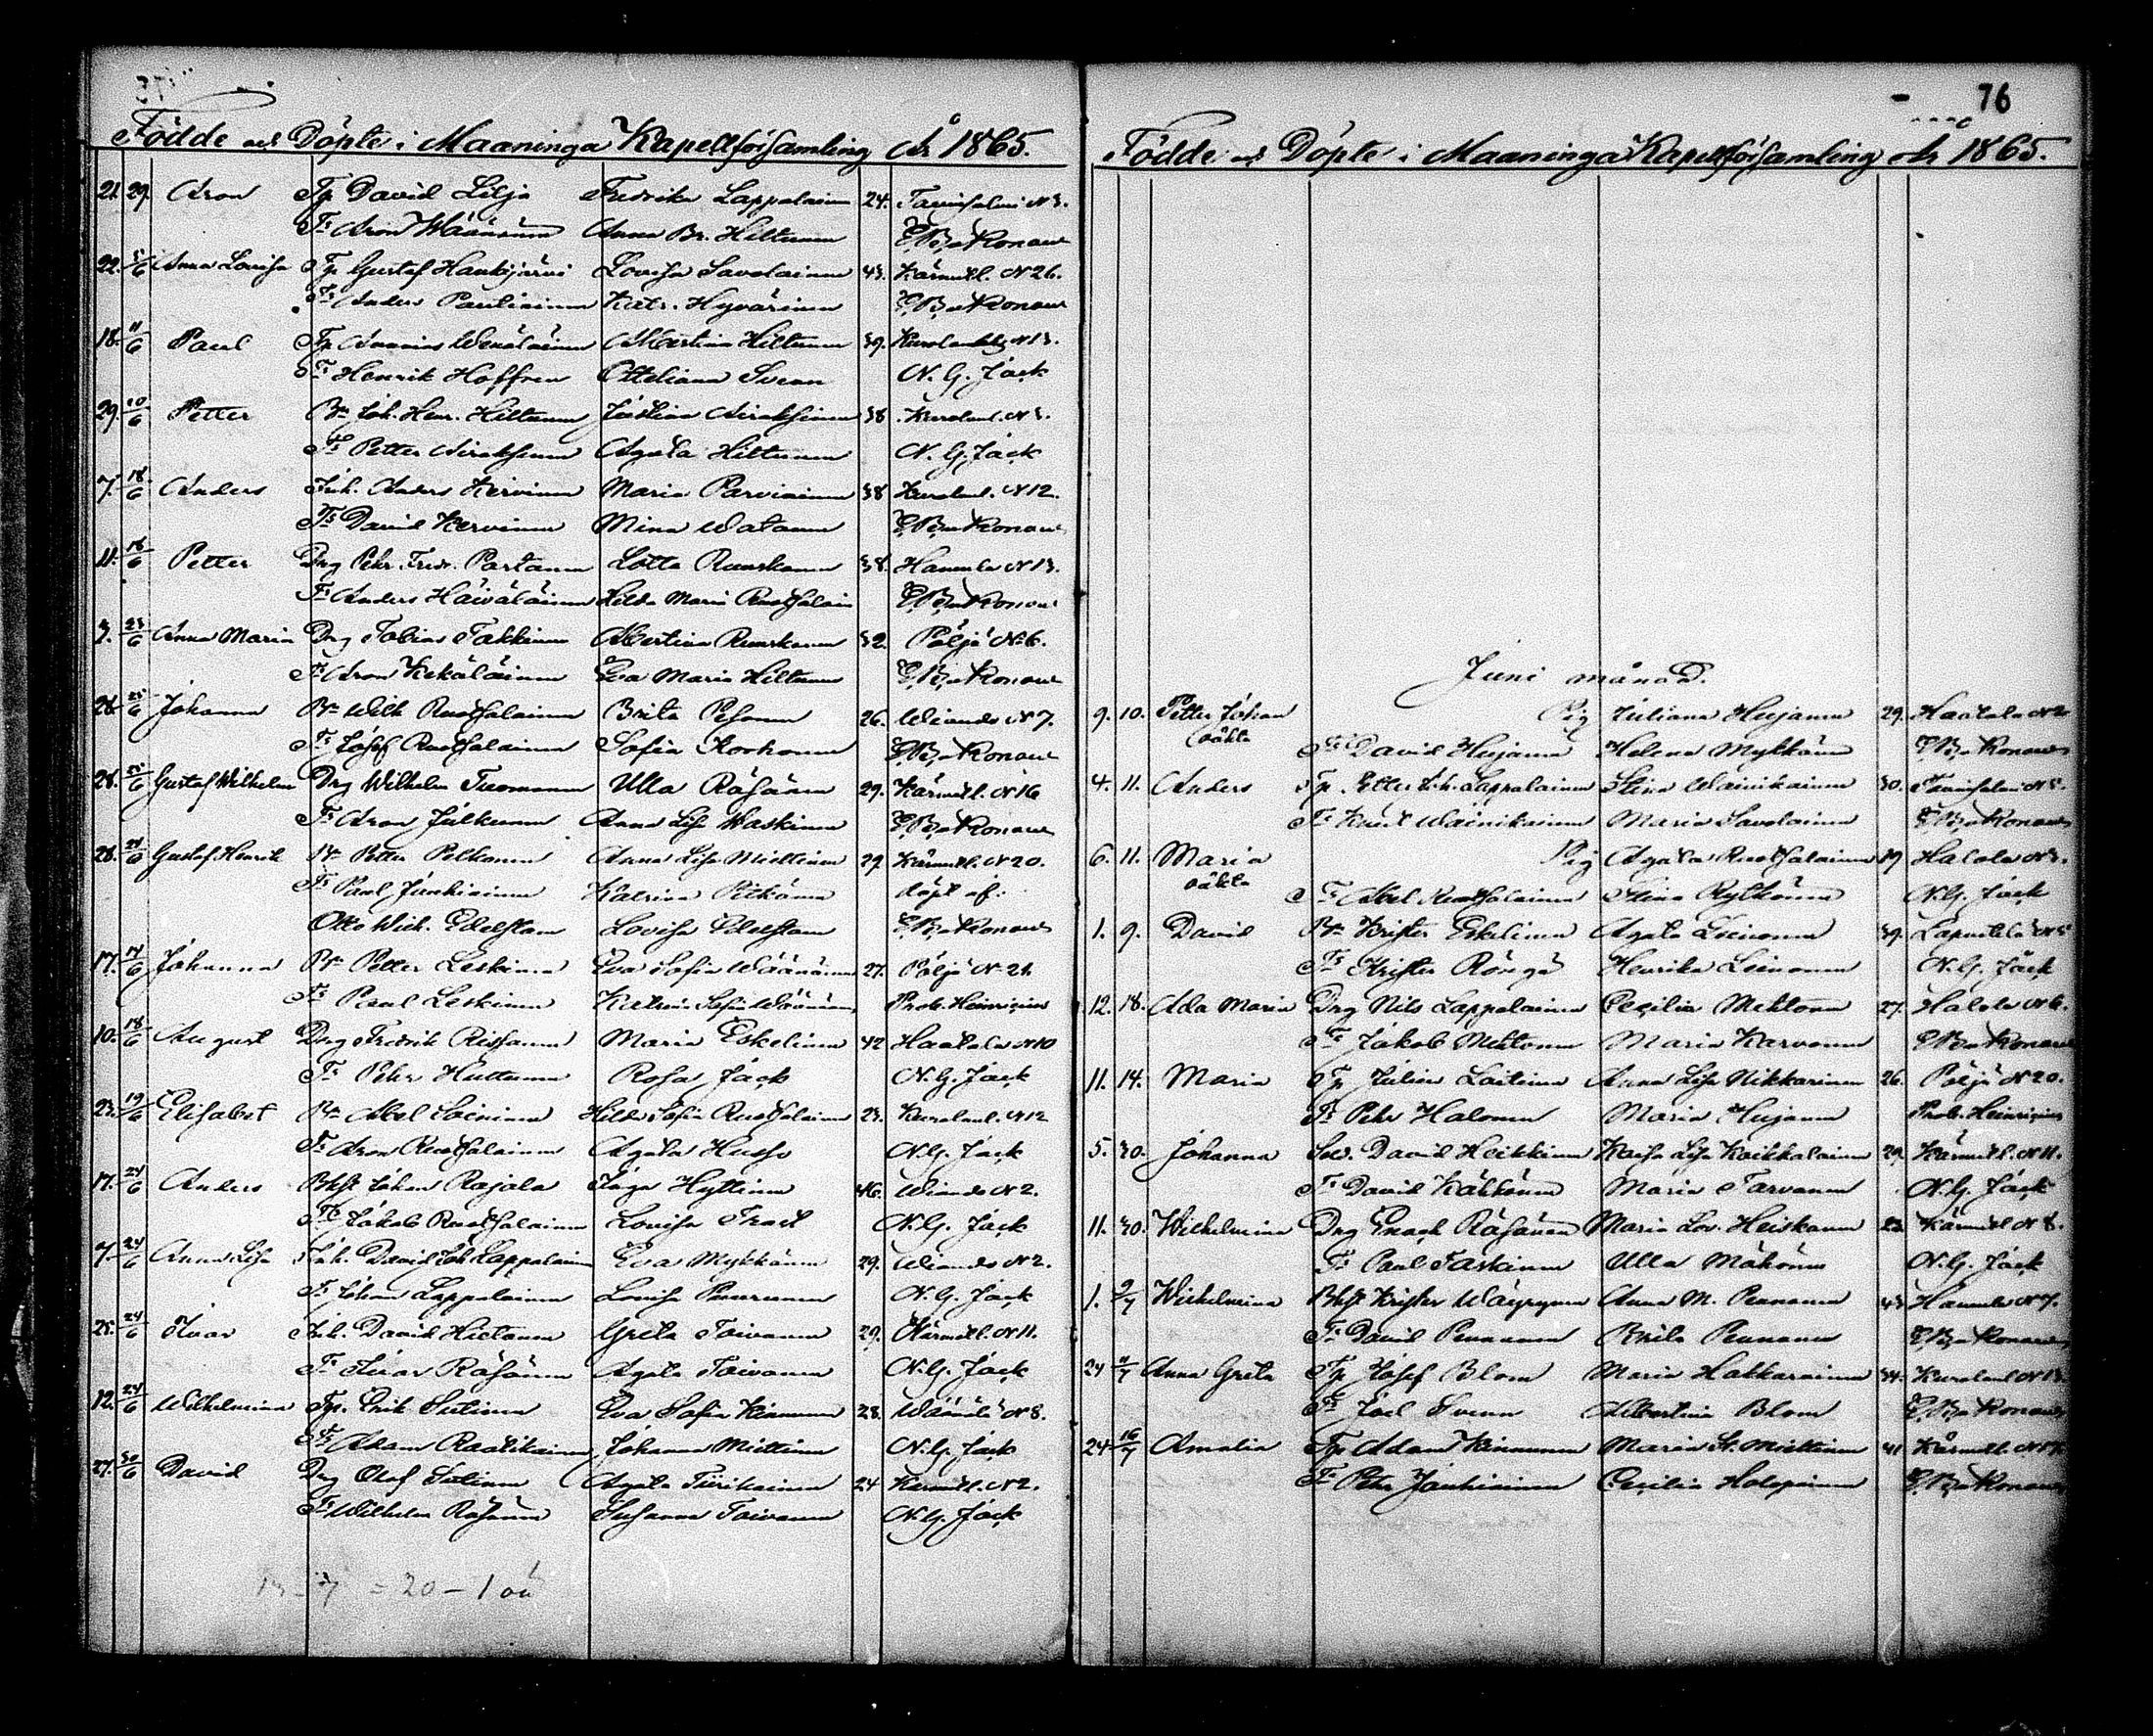 Födde och Döpte i Maaninga Kapellförsamling År 1865.
21. 29. Aron Tp David Lilja Fredrika Lappalainen 24. Tavinsalmi N 3.
Fr Aron Wäänänen Anna Br. Hiltunen E. B. Kronow
22. 5/6 Anna Lovisa Tp Gustaf Haukijärvi Lovisa Savolainen 43. Kärnutl. N 26.
Fr Anders Pauliainen Katr. Hyvärinen E. B. Kronow
18. 11/6 Paul Tp Ananias Wenäläinen Albertina Hiltunen 39. N 13.
Fr Henrik Hoffren Otteliana Svenn N. G. Jack
29. 10/6 Petter Br Joh. Henr. Hiltunen Justina Airaksinen 38. Kurolanl. N 3.
Fr Petter Airaksinen Agata Hiltunen N. G. Jack
7. 18/6 Anders Inh. Anders Kervinen Maria Parviainen 38 Kurolanl. N 12.
Fr David Kervinen Mina Watanen E. B. Kronow
11. 18/6 Petter Drg Pehr Fredr. Partanen Lotta Ruuskanen 38. Hamula N 13.
Fr Anders Häiväläinen Hilda Maria Ruotsalain E. B. Kronow
3. 23/6 Anna Maria Drg Tobias Takkinen Albertina Ruuskanen 32. Pöljä N 6.
Fr Aron Kekäläinen Eva Maria Hiltunen E. B. Kronow
28. 25/6 Johanna Br Wilh Ruotsalainen Brita Pesonen 26. Wiands N 7.
Fr Josef Ruotsalainen Sofia Korhonen E. B. Kronow
28. 25/6 Gustaf Wilhelm Drg Wilhelm Tuomanen Ulla Räsänen 29. Kärnutl. N 16
Fr Aron Julkunen Anna Lisa Waskinen E. B. Kronow
28. Gustaf Henrik Br Petter Pelkonen Anna Lisa Miettinen 29. Kärnutl. N 20.
Fr Paul Jauhiainen Katrina Pitkänen döpt af.
Otto Wilh. Edelstam Lovisa Edelstam E. B. Kronow
17. 17/6 Johanna Br Petter Leskinen Eva Sofia Wäänänen 27. Pöljä N 21.
Fr Paul Leskinen Katrin Sofia Wäänänen Prob. Heinricius
10. 18/6 August Drg Fredrik Rissanen Maria Eskelinen 42 Haatala N 10
Fr Pehr Huttunen Rosa Jack N. G. Jack
23. 19/6 Elisabet Br Abel Soininen Hilda Sofia Ruotsalainen 23. Kurolanl. N 12
Fr Aron Ruotsalainen Agata Husso N. G. Jack
17. 24/6 Anders Bkfr Johan Rajala Inga Hyttinen 46. Wiands N 2.
Fr Jakob Ruotsalainen Lovisa Trast N. G. Jack
7. 24/6 Anna Lisa Inh. David Joh Lappalainen Eva Mykkänen 29. Wiands N 2.
Fr Johan Lappalainen Lovisa N. G. Jack
25. 24/6 Ivar Inh. David Hietanen Greta Toivanen 29. Kärnutl. N 11.
Fr Ivar Räsänen Agata Toivanen N. G. Jack
12. 24/6 Wilhelmina Tp. Erik Sutinen Eva Sofia Kinnunen 28. Wäänälä N 8.
Fr Adam Raatikainen Johanna Miettinen N. G. Jack
27. 30/6 David Drg Olof Sutinen Agata Tiirikainen 24 Kärnutl. N 2.
Fr Wilhelm Räsänen Susanna Toivanen N. G. Jack
= 20 – 1 oä
76
Födde och Döpte i Maaninga Kapellförsamling År 1865.
Juni månad.
9. 10. Petter Johan Pig Juliana Hujanen 29. Haatala N 2
oäkta Fr David Hujanen Helena Mykkänen E. B. Kronow
4. 11. Anders Tp. Petter Joh. Lappalainen Stina Wainikainen 30. Tavinsalmi N 5.
Fr Knut Wainikainen Maria Savolainen E. B. Kronow
6. 11. Maria Pig Agata Ruotsalainen 19 Halola N 3.
oäkta Fr Abel Ruotsalainen Stina Rytkönen N. G. Jack
1. 9. David Br Krister Eskelinen Agata Leinonen 39. Lapinlaks N 5
Fr Krister Röngä Henrika Leinonen N. G. Jack
12. 18. Ada Maria Drg Nils Lappalainen Cecilia Mehtonen 27. Halola N 6.
Fr Jakob Mehtonen Maria Karvonen E. B. Kronow
11. 14. Maria Tp Julius Laitinen Anna Lisa Nikkarinen 26. Pöljä N 20.
Fr Pehr Halonen Maria Hujanen Prob. Heinricius
5. 30. Johanna Sold. David Heikkinen Kaisa Lisa Kaikkalainen 29. Kärnutl. N 11.
Fr David Kähkönen Maria Tarvanen N. G. Jack
11. 30. Wilhelmina Drg Enoch Räsänen Maria Lov. Heiskanen 22. Kärnutl N 8.
Fr Paul Taskinen Ulla Mähönen N. G. Jack
1. 9/7 Wilhelmina Bkfr Krister Wäyrynen Anna M. Pennanen 43 Hamula N 7.
Fr David Pennanen Brita Pennanen E. B. Kronow
24 9/7 Anna Greta Tp Josef Blom Maria Hakkarainen 34. Kurolanl N 13.
Fr Joel Svenn Albertina Blom E. B. Kronow
24 16/7 Amalia Tp Adam Kinnunen Maria St. Miettinen 41 Kärnutl.
Fr Pehr Jauhiainen Cecilia Holopainen E. B. Kronow